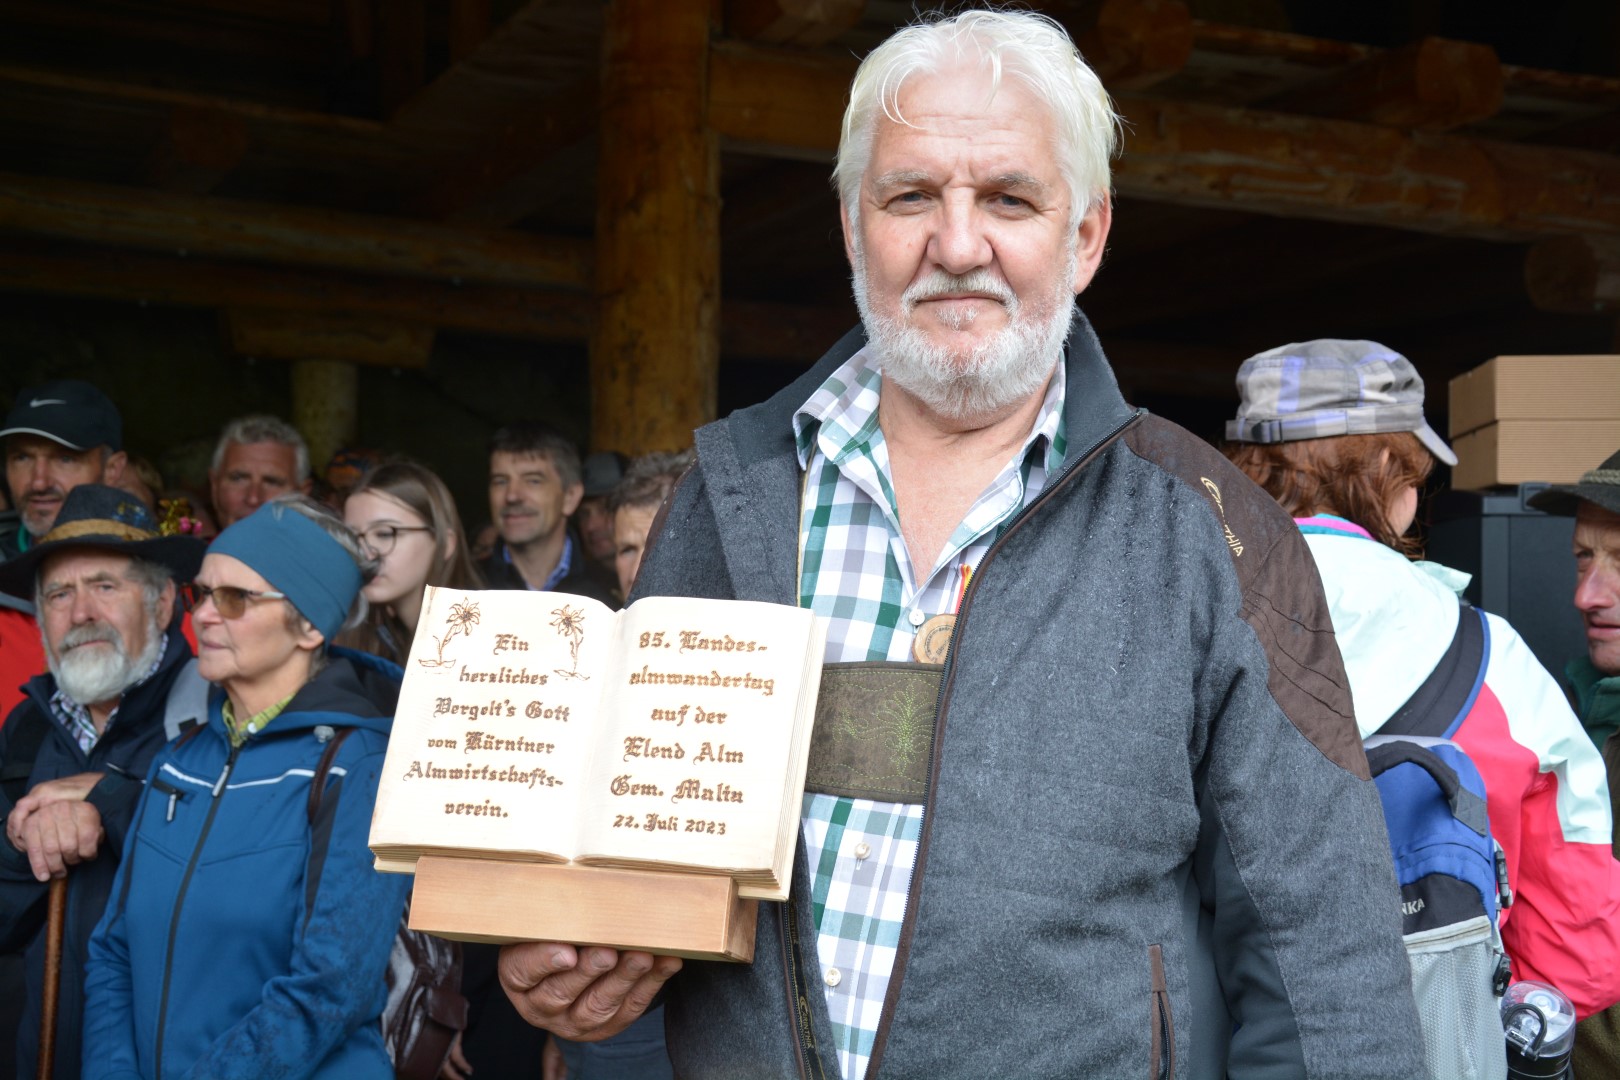 Ein
herzliches
Vergelt's Gott
vom Kärntner
Almwirtschafts-
verein.
85. Landes-
almwandertag
auf der
Elend Alm
Gem. Malta
22. Juli 2023